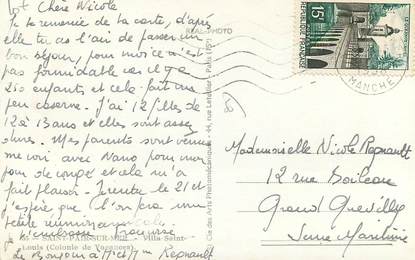 Chère Nicole
Je te remercie de ta carte, d'après
elle tu as l'air de passer un
bon séjour, pour moi ce n'est
pas formidable car il y a
250 enfants et cela fait un
peu caserne. J'ai 12 filles de
12 à 13 ans et elles sont assez
dures. Mes parents sont venus
me voir avec Nano pour mon
jour de congé et cela m'a
fait plaisir. Je rentre le 21 et
j'espère que l'on fera une
petite
Je t'embrasse
SAINT-PAIR-SUR-MER - Villa Saint-
Louis (Colonie de Vacances)
Bonjour à Mr et Mme Regnault
REAL-PHOTO
Cie des Arts Photomécaniques - 44, rue Letellier - Paris (15e)
15F
RÉPUBLIQUE FRANÇAISE
MANCHE
Mademoiselle Nicole Regnault
12 rue Boileau
Grand Quevilly
Seine Maritime